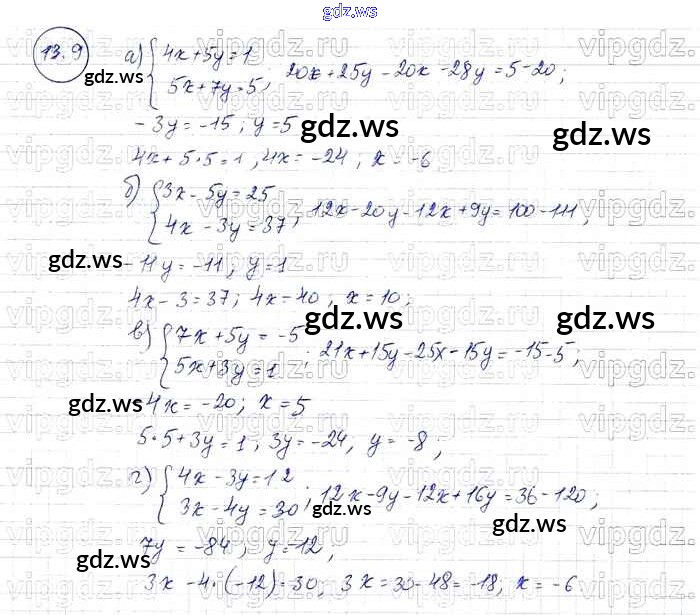 gdz.ws
13.9 а) { 4x+5y=1
5x+7y=5 ; 20x+25y-20x-28y=5-20;
-3y=-15; y=5
4x+5·5=1, 4x=-24; x=-6
б) { 3x-5y=25
4x-3y=37 ; 12x-20y-12x+9y=100-111;
-11y=-11, y=1
4x-3=37; 4x=40, x=10;
в) { 7x+5y=-5
5x+3y=1 ; 21x+15y-25x-15y=-15-5;
-4x=-20; x=5
5·5+3y=1, 3y=-24, y=-8;
г) { 4x-3y=12
3x-4y=30 ; 12x-9y-12x+16y=36-120;
7y=-84, y=-12,
3x-4·(-12)=30, 3x=30-48=-18, x=-6
gdz.ws
gdz.ws
gdz.ws
gdz.ws
gdz.ws
gdz.ws
gdz.ws
gdz.ws
gdz.ws
gdz.ws
gdz.ws